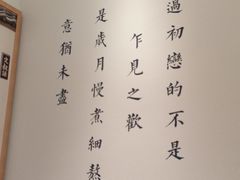 過初戀的不是
乍見之歡
是歲月慢煮細熬
意猶未盡